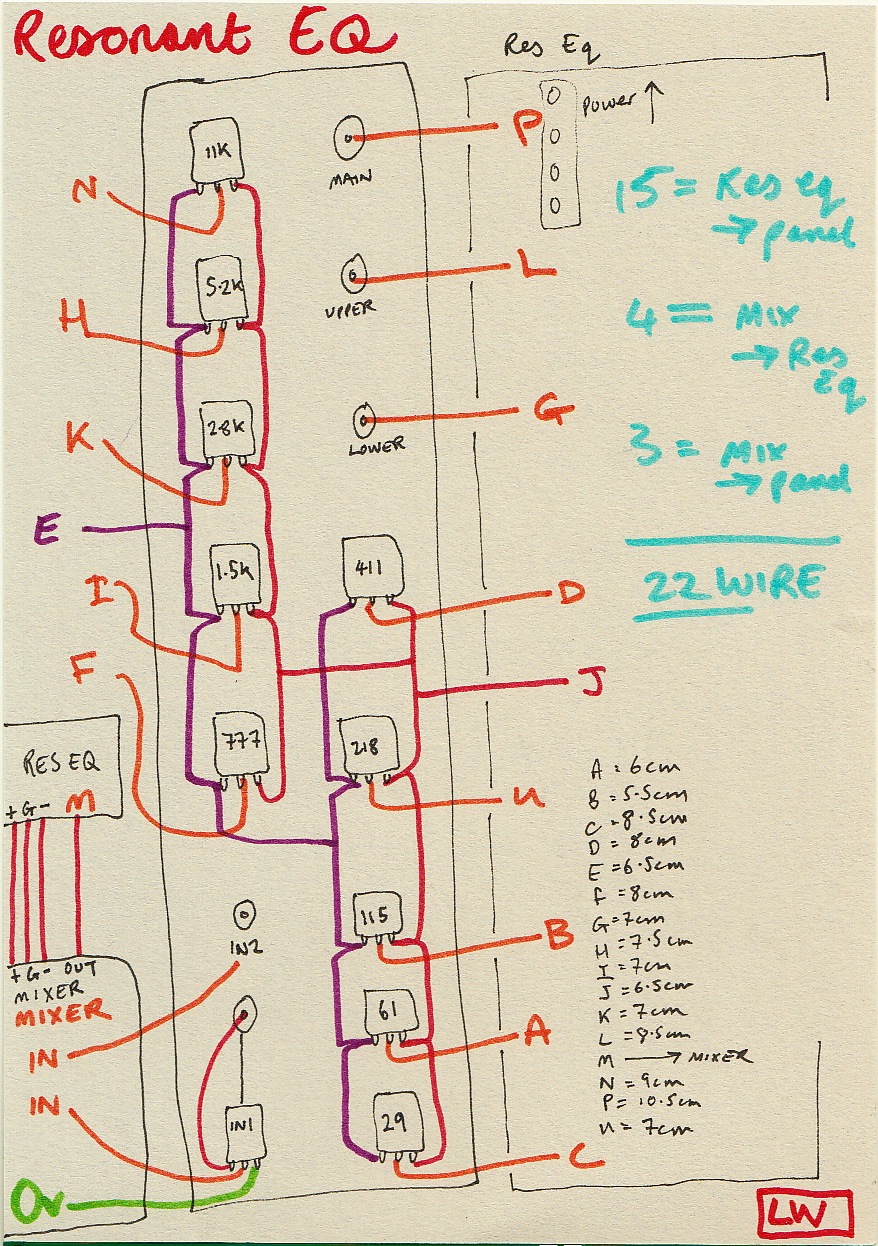 Resonant EQ
Res Eq
Power ↑
11K
MAIN
P
N
15 = Res eq
→ panel
5.2K
UPPER
L
H
4 = Mix
→ Res
Eq
28K
LOWER
G
K
3 = Mix
→ panel
E
22 WIRE
1.5K
411
I
D
F
J
777
218
U
RES EQ
+ G - M
A = 6cm
B = 5.5cm
C = 8.5cm
D = 8cm
E = 6.5cm
F = 8cm
G = 7cm
H = 7.5cm
I = 7cm
J = 6.5cm
K = 7cm
L = 8.5cm
M → MIXER
N = 9cm
P = 10.5cm
U = 7cm
115
B
IN2
+ G - OUT
MIXER
MIXER
61
A
IN
IN
IN1
29
C
Ov
LW